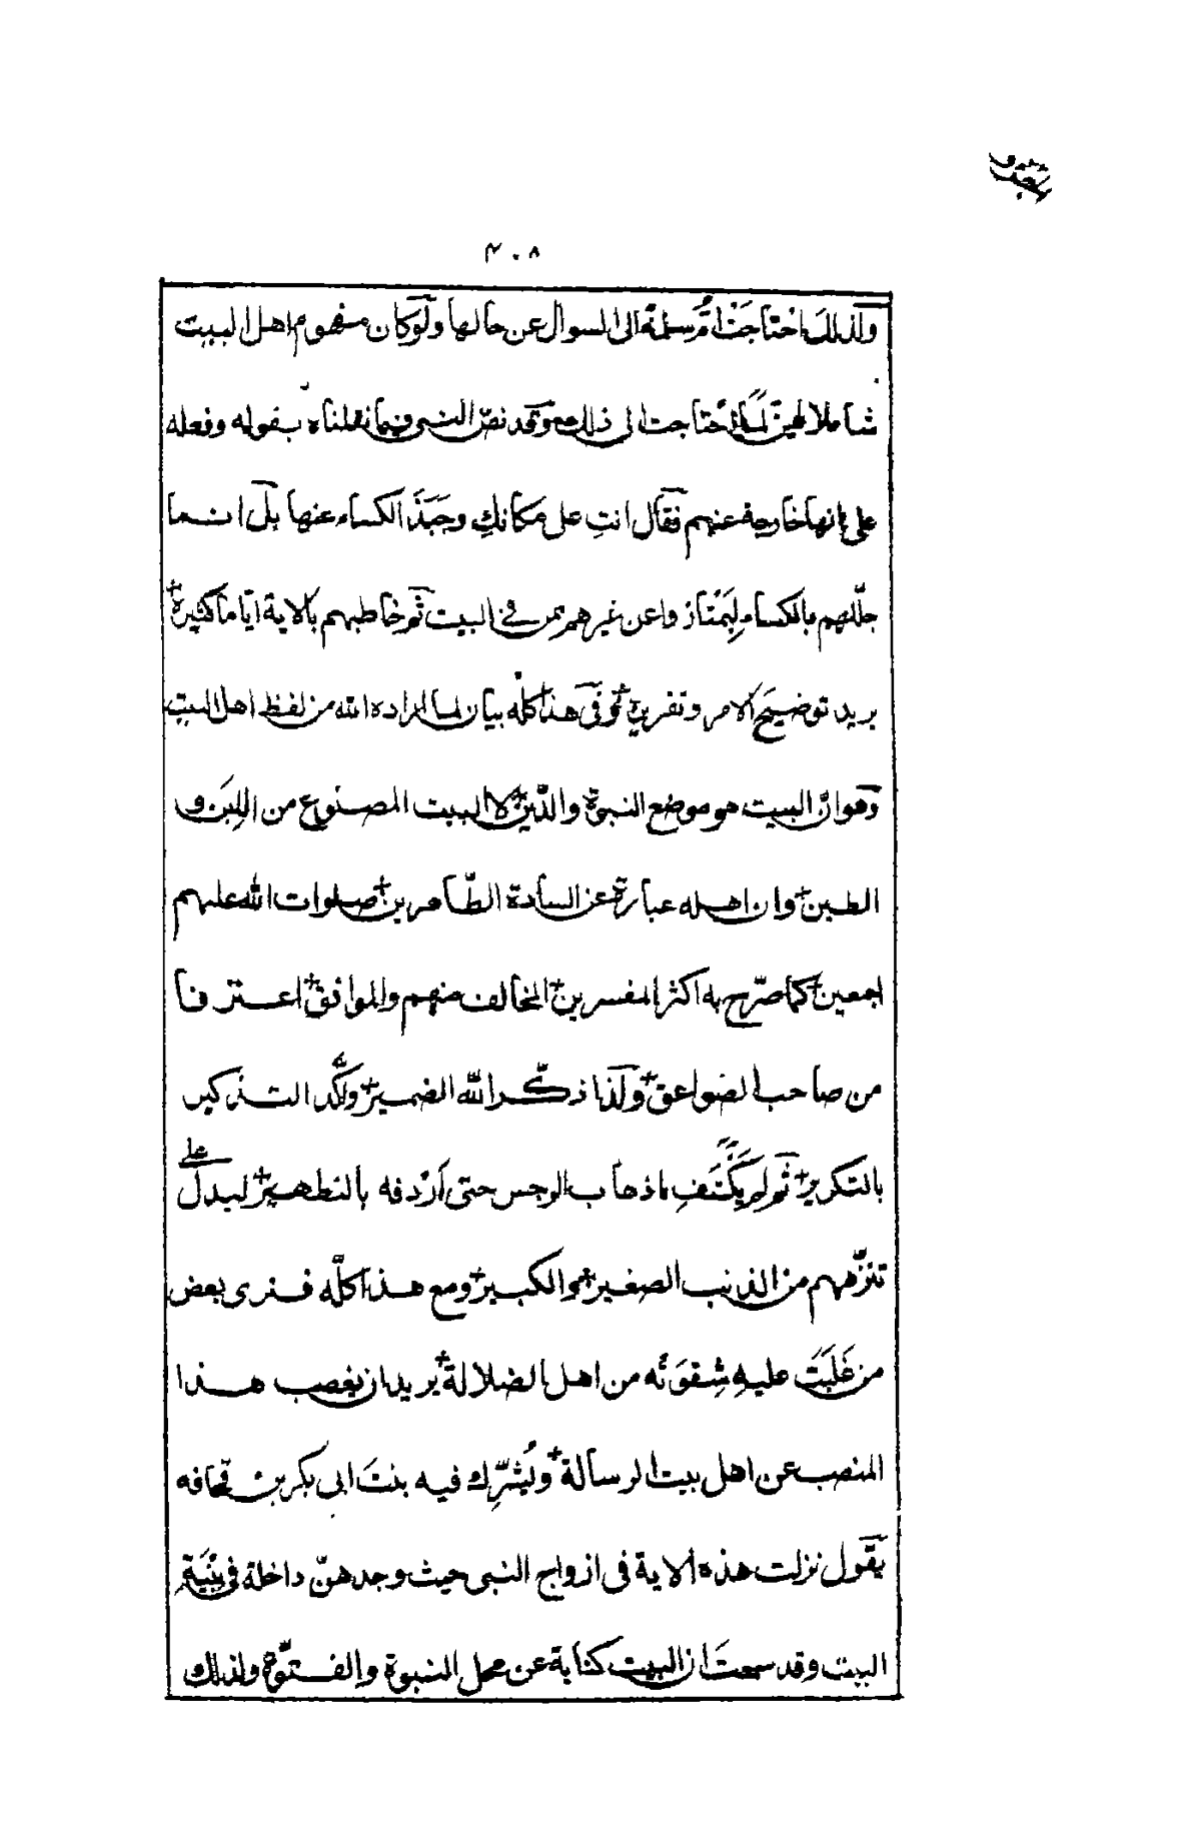 ٣٠٨
ولذلك احتاجت ام سلمة الى السوال عن حالها ولو كان مفهوم اهل البيت
شاملا لهن لما احتاجت الى ذلك وقد نصّ النبي فيما نقلناه بقوله وفعله
على انها خارجة عنهم فقال انتِ على مكانكِ وجَبَذَ الكساء عنها بلى انما
جلّلهم بالكساء لِيَمْتازوا عن غيرهم ممن في البيت ثم خاطبهم بالاية ايّاما كثيرة
يريد توضيح الامر وتقريره وفي هذا كلّه بيان لما اراده الله من لفظ اهل البيت
وهو انّ البيت هو موضع النبوة والدّين لا البيت المصنوع من اللِبَن و
الطين وان اهله عبارة عن السادة الطّاهرين صلوات الله عليهم
اجمعين كما صرّح به اكثر المفسرين المخالف منهم والموافق اعترفنا
من صاحب الصواعق ولذا ذكّر الله الضمير واكّد التذكير
بالتكرير ثم لم يَكْتَفِ باذهاب الرجس حتى اَرْدفه بالتطهير ليدلّ على
تنزّههم من الذنب الصغير والكبير ومع هذا كلّه فنرى بعض
من غَلَبَتْ عليهِ شِقوَتُه من اهل الضلالة يريد ان يغصب هذا
المنصب عن اهل بيت الرسالة ويُشرِّك فيه بنتَ ابى بكر بن قحافه
يقول نزلت هذه الاية فى ازواج النبى حيث وجدهنّ داخلة فى بُنْيَةِ
البيت وقد سمعتَ ان البيت كناية عن محل النبوة والفتوّة ولذلك